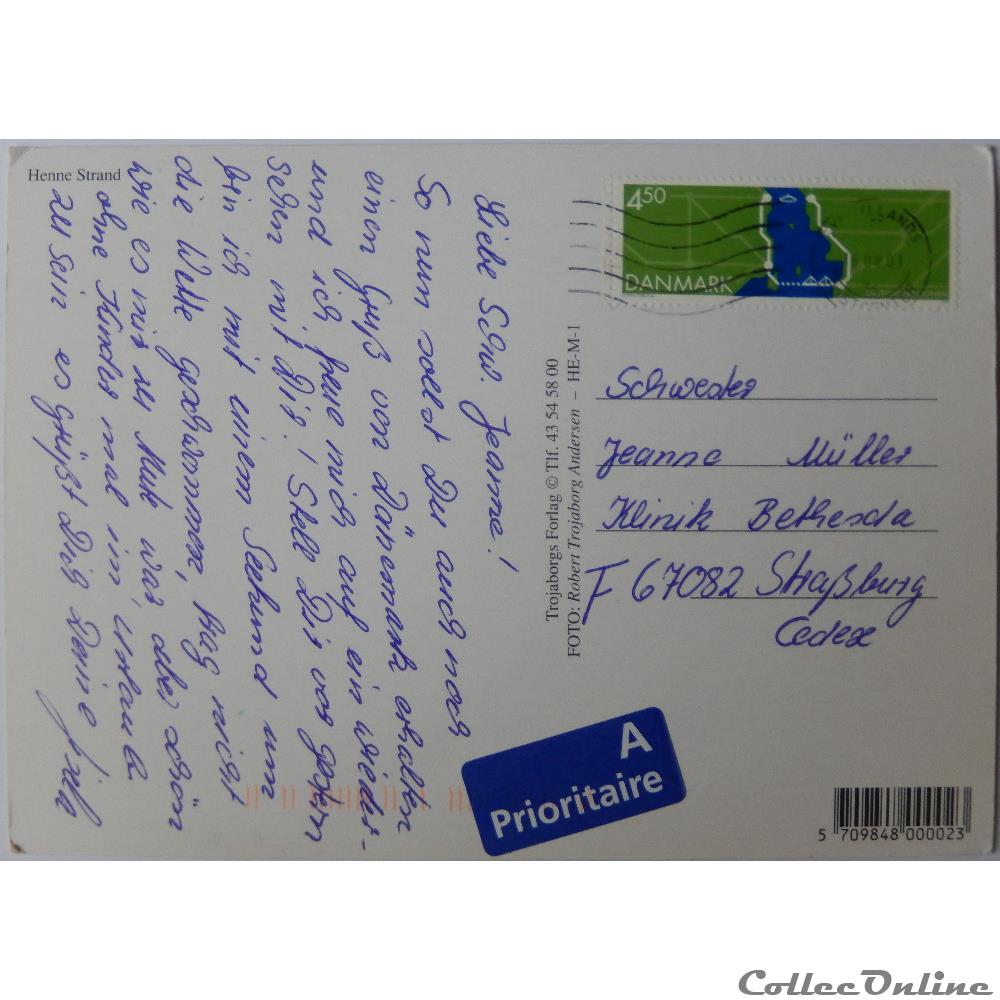 Henne Strand
Liebe Schw. Jeanne!
So nun sollst Du auch noch
einen Gruß von Dänemark erhalten
und ich freue mich auf ein wieder-
sehen mit Dir! Stell Dir vor gestern
bin ich mit einem Seehund um
die Wette geschwommen, frag nicht
wie es mir zu Mute war, aber schön
ohne Kinder mal im Urlaub
zu sein es grüßt Dich Deine
Trojaborgs Forlag © Tlf. 43 54 58 00
FOTO: Robert Trojaborg Andersen – HE-M-1
4⁵⁰
DANMARK
LLANDS
Schwester
Jeanne Müller
Klinik Bethesda
F 67082 Straßburg
Cedex
A
Prioritaire
5 709848 000023
CollecOnline